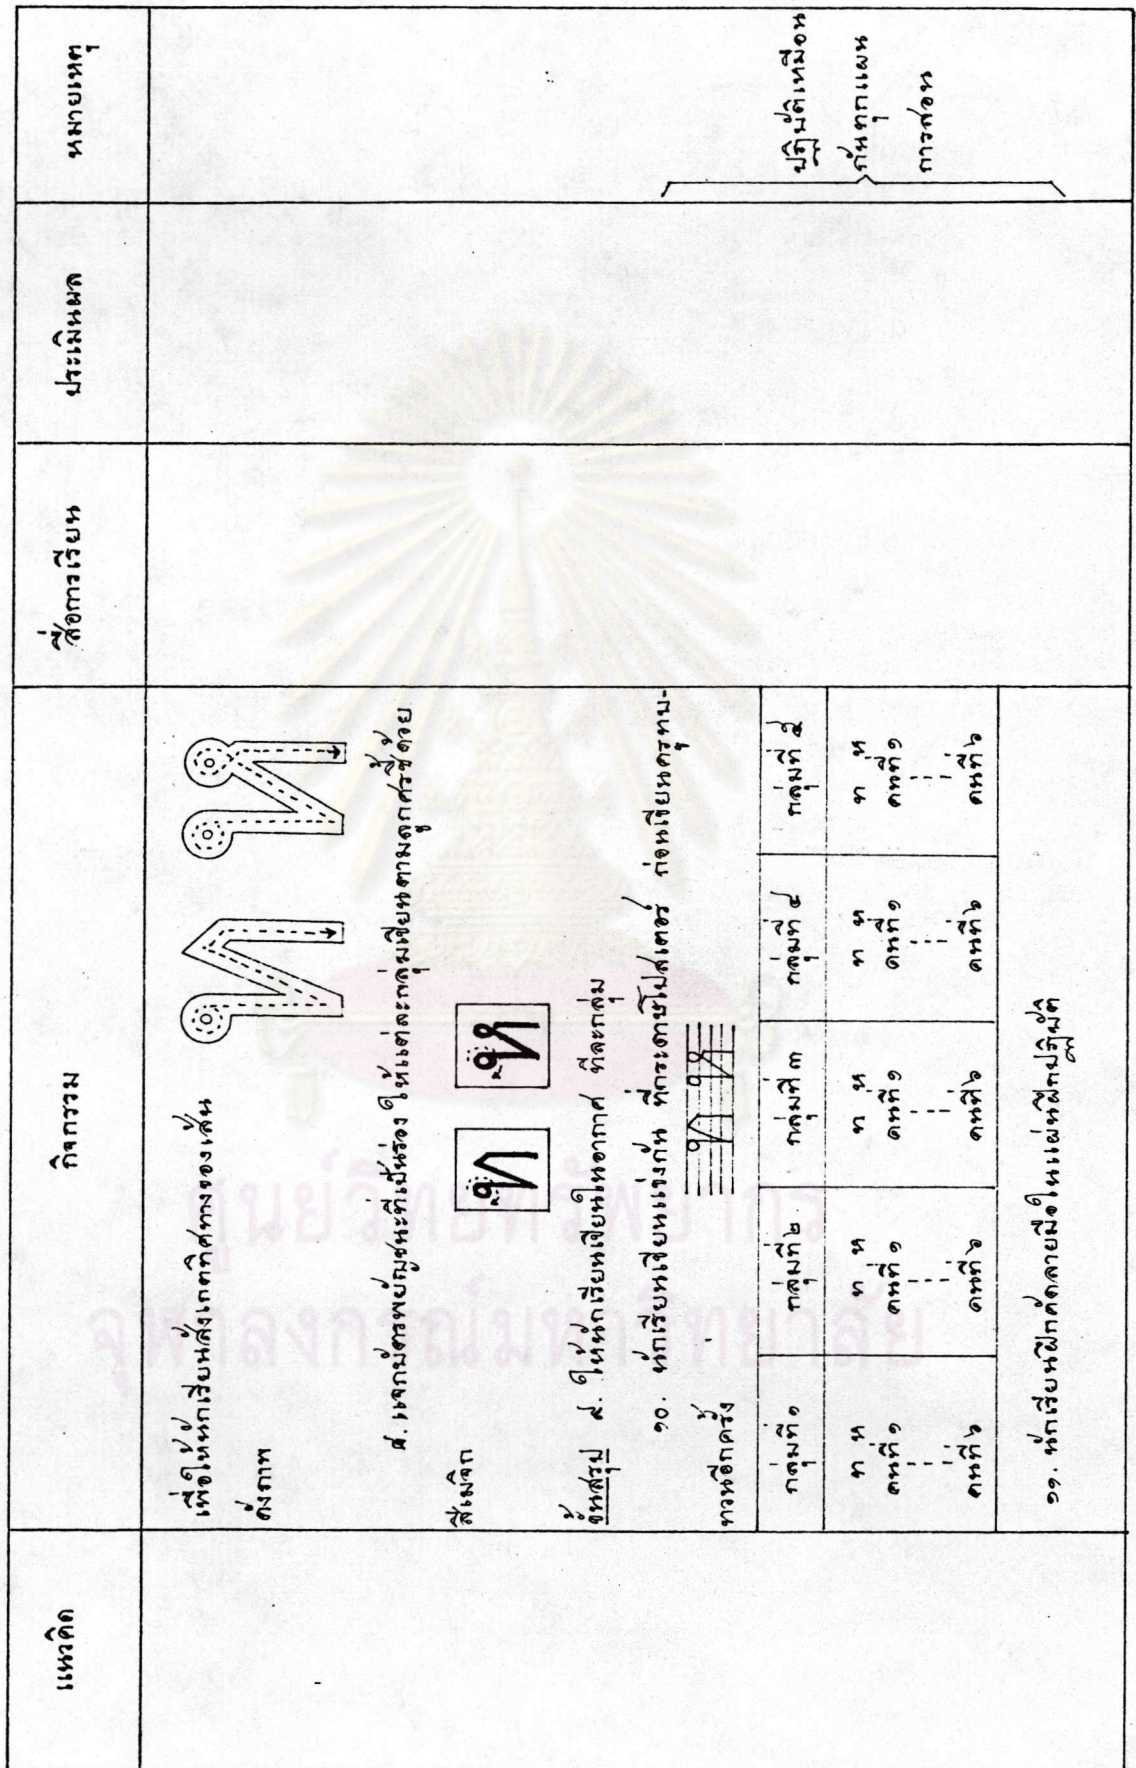 แนวคิด
กิจกรรม
สื่อการเรียน
ประเมินผล
หมายเหตุ
เพื่อให้นักเรียนสังเกตทิศทางของเส้น
ดังภาพ
ท ห
๘. แจกบัตรพยัญชนะที่เป็นร่อง ให้แต่ละกลุ่มเขียนตามลูกศรชี้ด้วย
สีเมจิก
ท ห
ขั้นสรุป ๙. ให้นักเรียนเขียนในอากาศ ทีละกลุ่ม
๑๐. นักเรียนเขียนแข่งกัน ที่กระดาษโปสเตอร์ ก่อนเขียนครูทบ-
ทวนอีกครั้ง
ท ห
กลุ่มที่ ๑ กลุ่มที่ ๒ กลุ่มที่ ๓ กลุ่มที่ ๔ กลุ่มที่ ๕
ท ห ท ห ท ห ท ห ท ห
คนที่ ๑ คนที่ ๑ คนที่ ๑ คนที่ ๑ คนที่ ๑
คนที่ ๖ คนที่ ๖ คนที่ ๖ คนที่ ๖ คนที่ ๖
๑๑. นักเรียนฝึกคัดลายมือในแผ่นฝึกปฏิบัติ
ปฏิบัติเหมือน
กันทุกแผน
การสอน
ศูนย์วิทยทรัพยากร
จุฬาลงกรณ์มหาวิทยาลัย